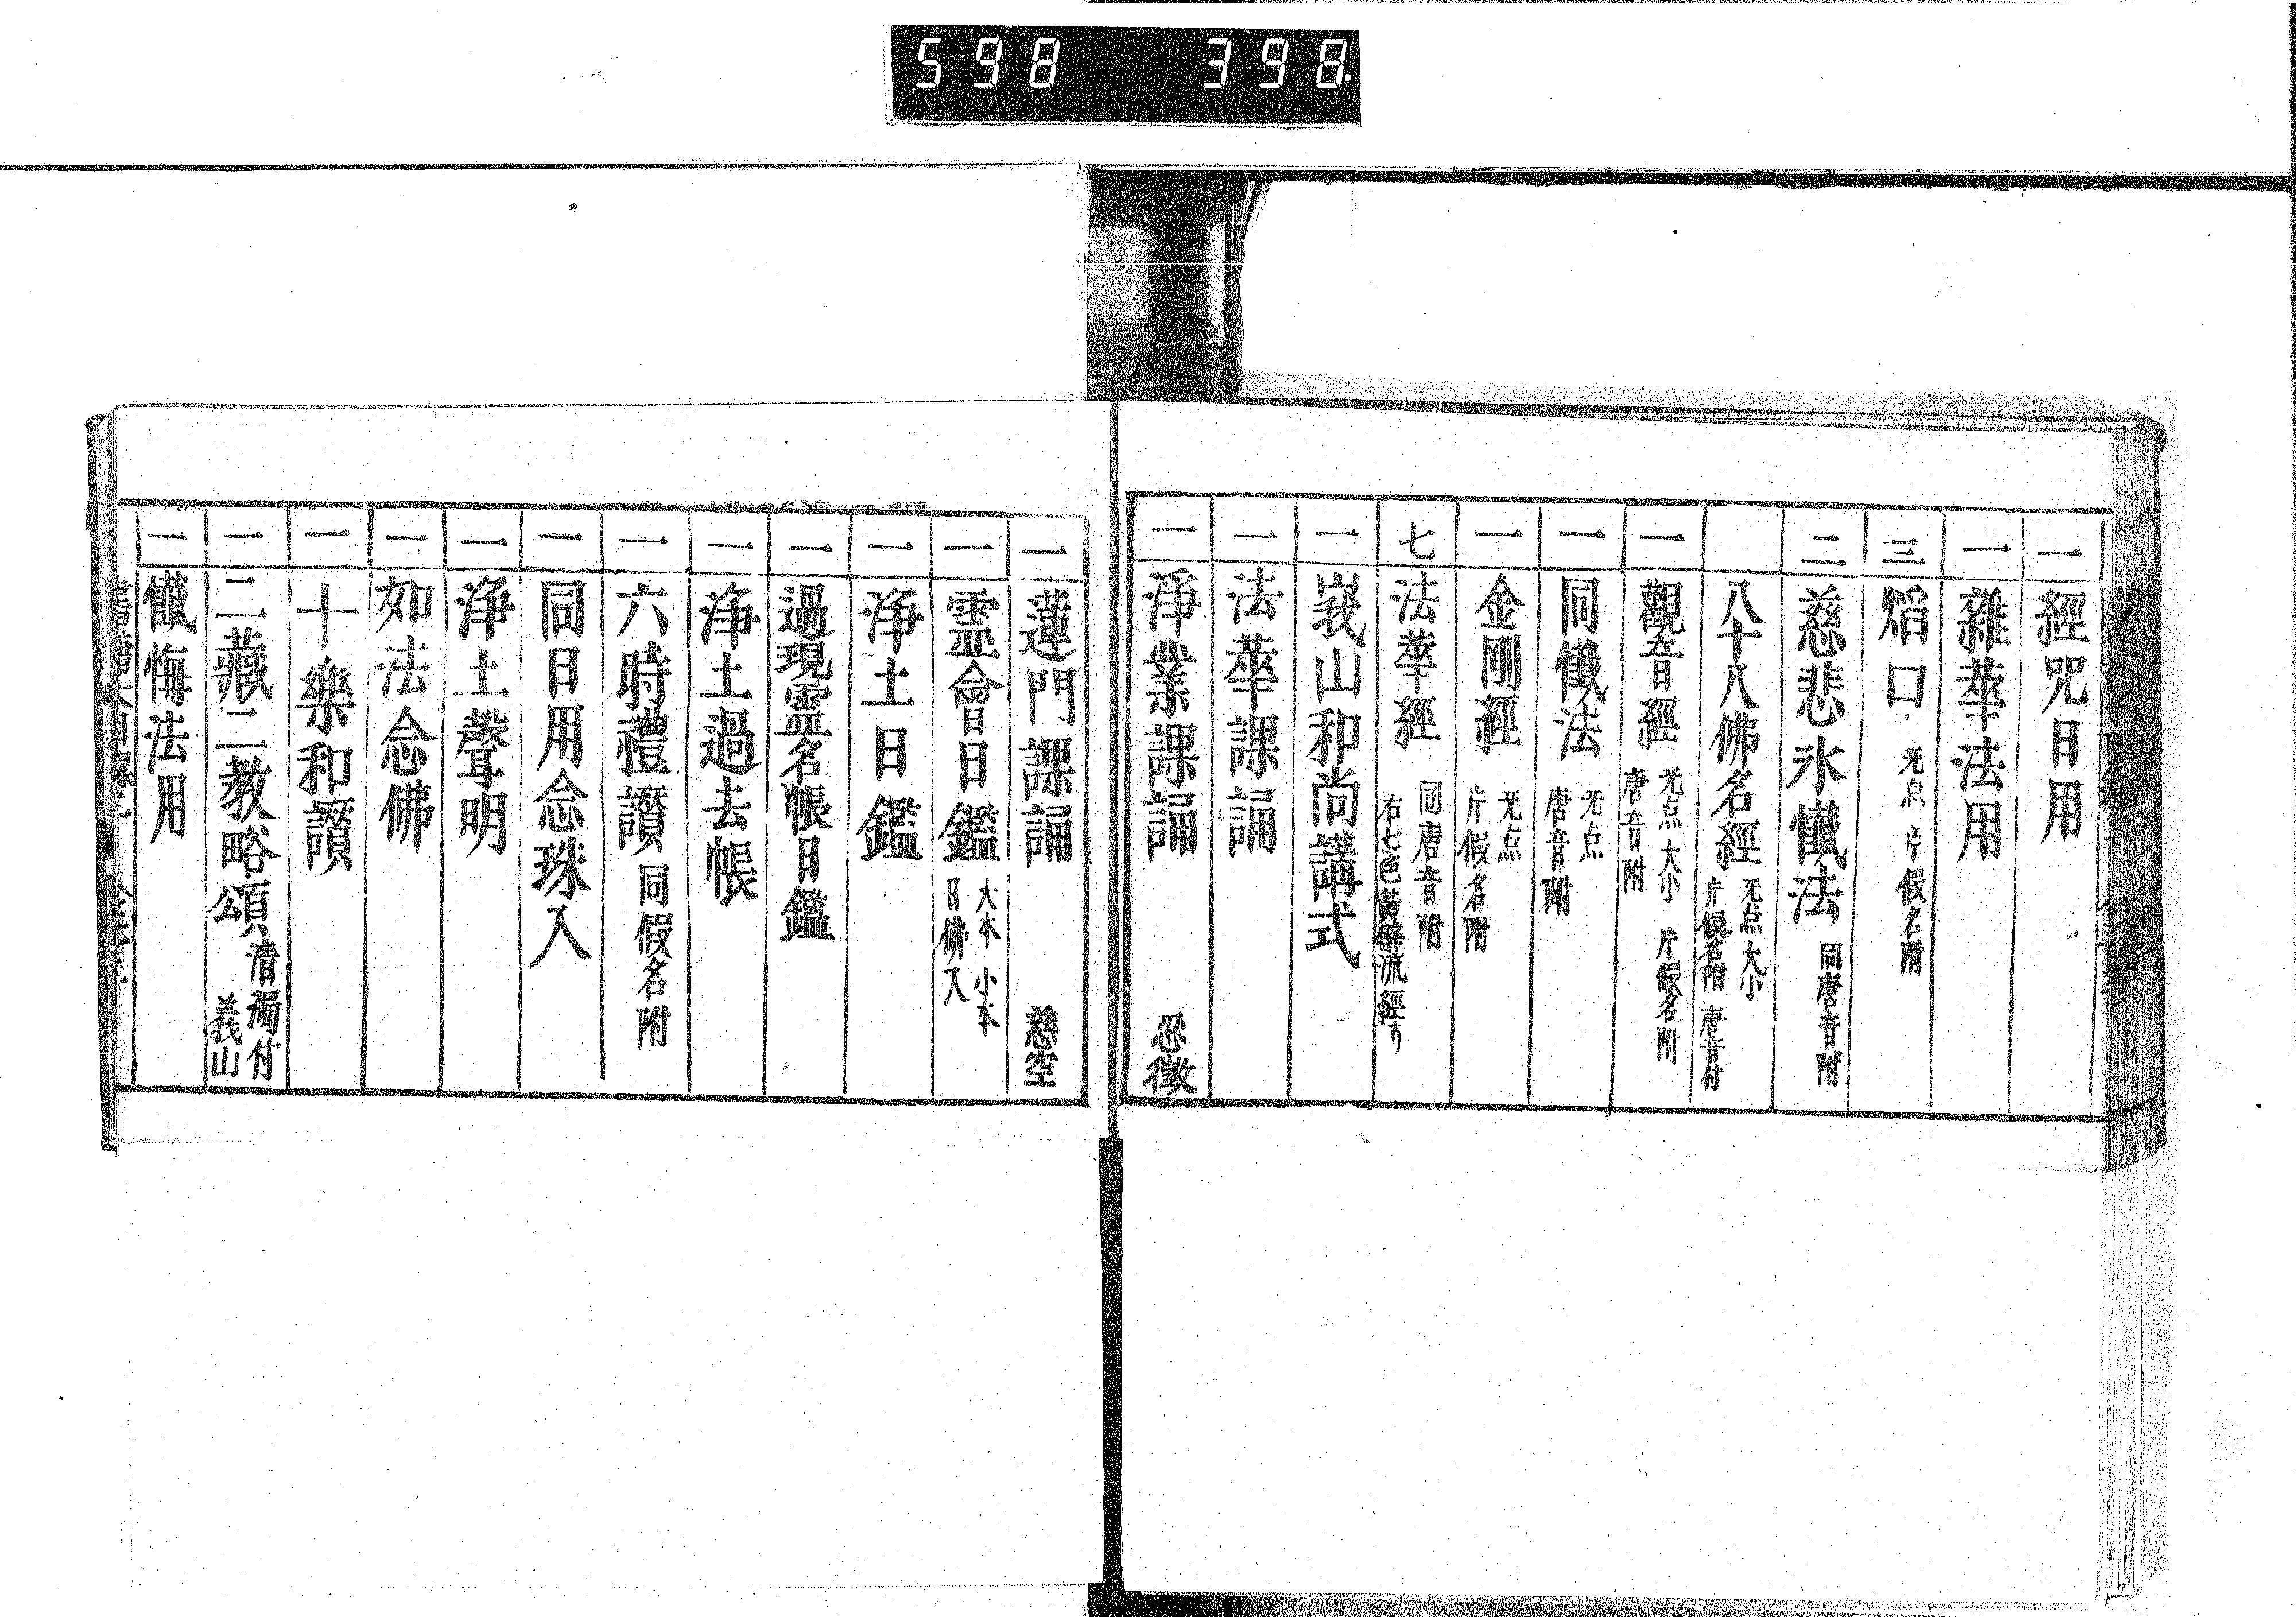 598 398.
一 經咒日用
一 雜華法用
三 焰口 无点 片假名附
二 慈悲水懺法 同唐音附
八十八佛名經 无点 大小 片假名附 唐音付
一 觀音經 无点 大小 片假名附 唐音附
一 同懺法 无点 唐音附
一 金剛經 无点 片假名附
七 法華經 同唐音附 右七色黃檗流經
一 峩山和尚講式
一 法華課誦
一 淨業課誦 忍徵
一 蓮門課誦 慈空
一 霊會日鑑 大本 小本 日佛入
一 浄土日鑑
一 過現霊名帳日鑑
一 浄土過去帳
一 六時禮讃 同假名附
一 同日用念珠入
一 浄土聲明
一 如法念佛
一 十樂和讃
一 二藏二教略頌 清濁付 義山
一 懺悔法用